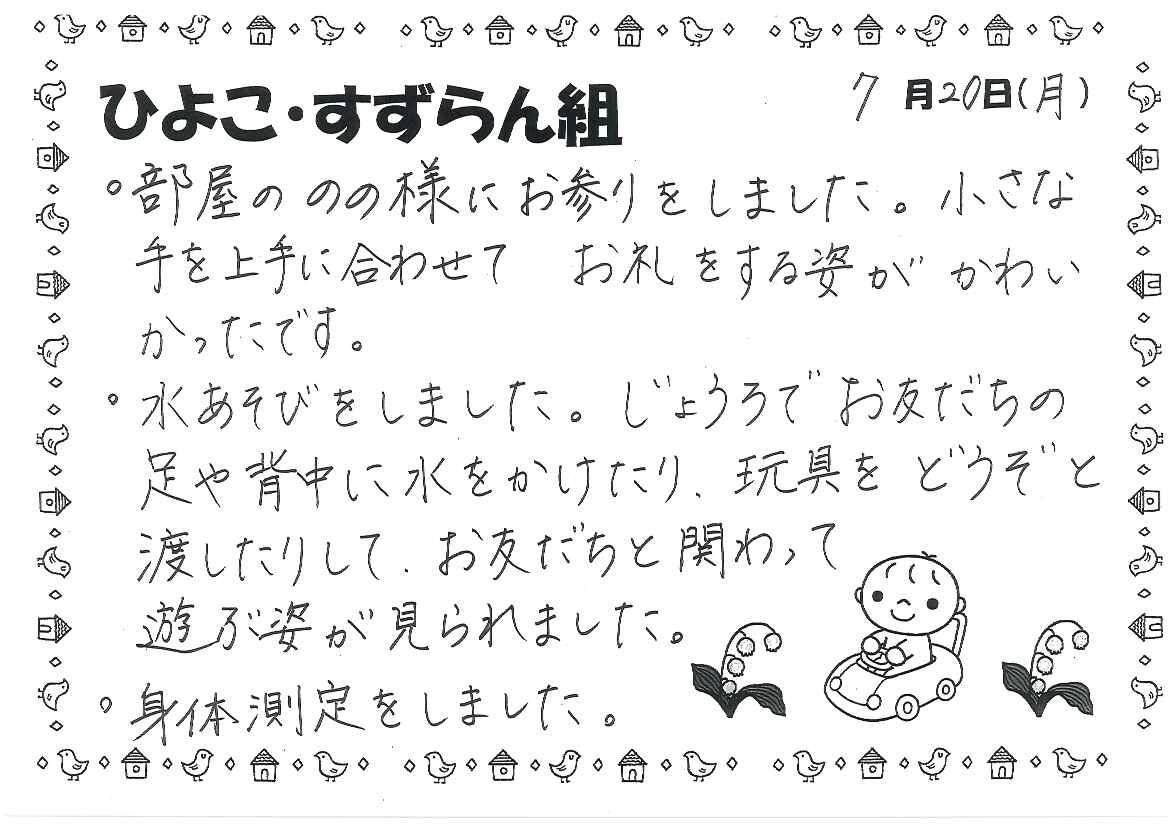 ひよこ・すずらん組
7月20日(月)
○部屋の のの様にお参りをしました。小さな
手を上手に合わせて お礼をする姿が かわい
かったです。
○水あそびをしました。じょうろでお友だちの
足や背中に水をかけたり、玩具を どうぞと
渡したりして、お友だちと関わって
遊ぶ姿が見られました。
○身体測定をしました。